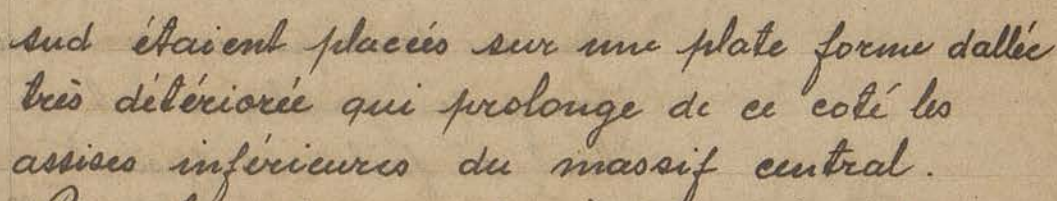 sud étaient placées sur une plate forme dallée
très détériorée qui prolonge de ce coté les
assises inférieures du massif central.